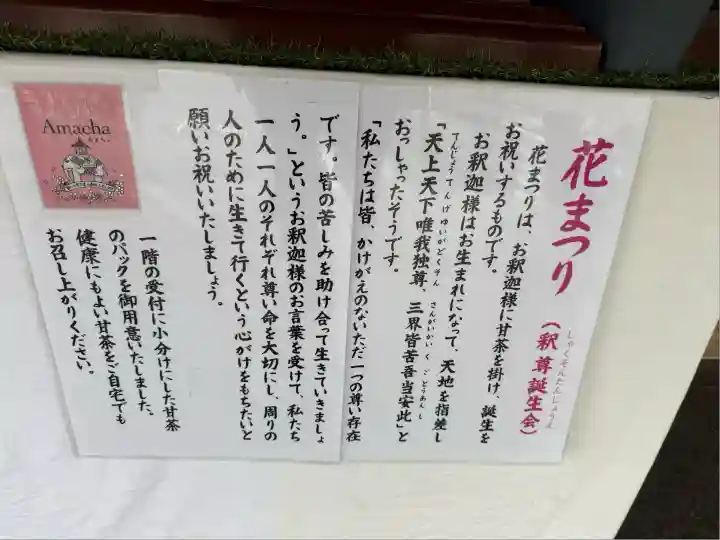 花まつり（釈尊誕生会）
しゃくそんたんじょうえ
花まつりは、お釈迦様に甘茶を掛け、誕生を
お祝いするものです。
お釈迦様はお生まれになって、天地を指差し
「天上天下唯我独尊、三界皆苦吾当安此」と
てんじょうてんげゆいがどくそん さんがいかいくごとうあんし
おっしゃったそうです。
「私たちは皆、かけがえのないただ一つの尊い存在
です。皆の苦しみを助け合って生きていきましょ
う。」というお釈迦様のお言葉を受けて、私たち
一人一人のそれぞれ尊い命を大切にし、周りの
人のために生きて行くという心がけをもちたいと
願いお祝いいたしましょう。
Amacha
一階の受付に小分けにした甘茶
のパックを御用意いたしました。
健康にもよい甘茶をご自宅でも
お召し上がりください。